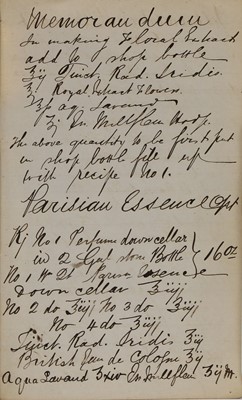 Memorandum
In making Floral Extract
add to shop bottle
ʒij Tinct. Rad. Iridis.
ʒj Royal Extract Flowers.
ʒss aq. Lavand
ʒj En Millefleu Hoog.
The above quantity to be first put
in shop bottl fill up
with recipe No 1.
Parisian Essence
R No 1 Perfume down cellar
in 2 Gal stone Bottle } 16 oz
No 1 Essence
down cellar ʒiij
No 2 do ʒiij No 3 do ʒiij
No 4 do ʒiij
Tinct. Rad. Iridis ʒij
British Eau de Cologne ʒij
Aqua Lavand ʒxiv En Millefleu ʒij M.